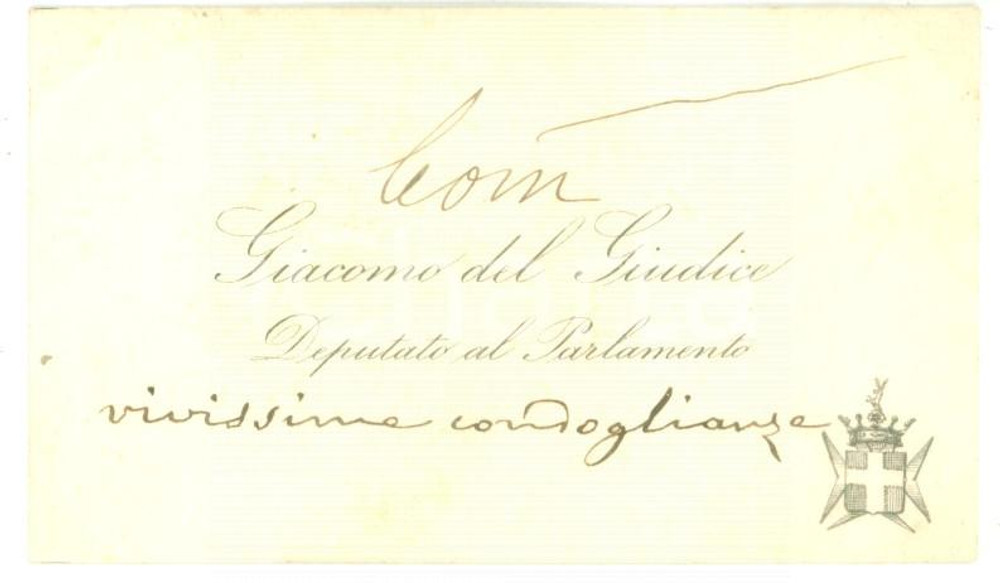 Com
Giacomo del Giudice
Deputato al Parlamento
vivissime condoglianze